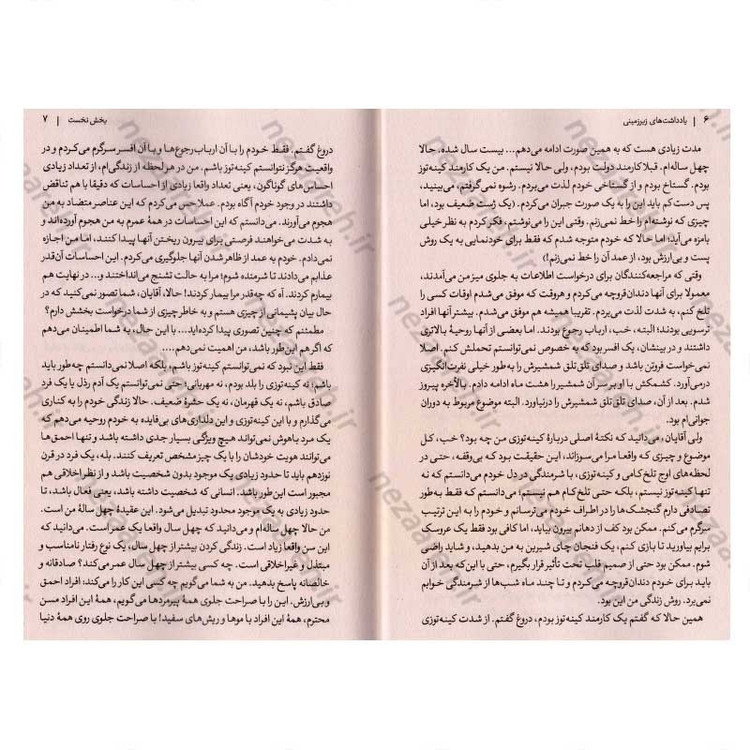 ۶ | یادداشت‌های زیرزمینی
مدت زیادی هست که به همین صورت ادامه می‌دهم... بیست سال شده، حالا
چهل ساله‌ام. قبلا کارمند دولت بودم، ولی حالا نیستم. من یک کارمند کینه‌توز
بودم. گستاخ بودم و از گستاخی خودم لذت می‌بردم. رشوه نمی‌گرفتم، می‌بینید،
پس دست کم باید این را به یک صورت جبران می‌کردم. (یک ژست ضعیف بود، اما
چیزی که نوشته‌ام را خط نمی‌زنم. وقتی این را می‌نوشتم، فکر کردم به نظر خیلی
بامزه می‌آید؛ اما حالا که خودم متوجه شدم که فقط برای خودنمایی به یک روش
پست و بی‌ارزش بود، از عمد آن را خط نمی‌زنم!)
وقتی که مراجعه‌کنندگان برای درخواست اطلاعات به جلوی میز من می‌آمدند،
معمولا برای آنها دندان‌قروچه می‌کردم و هروقت که موفق می‌شدم اوقات کسی را
تلخ کنم، به شدت لذت می‌بردم. تقریبا همیشه هم موفق می‌شدم. بیشتر آنها افراد
ترسویی بودند؛ البته، خب، ارباب رجوع بودند. اما بعضی از آنها روحیهٔ بالاتری
داشتند و در بینشان، یک افسر بود که به خصوص نمی‌توانستم تحملش کنم. اصلا
نمی‌خواست فروتن باشد و صدای تلق تلق شمشیرش را به‌طور خیلی نفرت‌انگیزی
درمی‌آورد. کشمکش با او بر سر آن شمشیر را هشت ماه ادامه دادم. بالأخره پیروز
شدم. بعد از آن، صدای تلق تلق شمشیرش را درنیاورد. البته موضوع مربوط به دوران
جوانی‌ام بود.
ولی آقایان، می‌دانید که نکتهٔ اصلی دربارهٔ کینه‌توزی من چه بود؟ خب، کل
موضوع و چیزی که واقعا مرا می‌سوزاند، این حقیقت بود که بی‌وقفه، حتی در
لحظه‌های اوج تلخ‌کامی و کینه‌توزی، با شرمندگی در دل خودم می‌دانستم که نه
تنها کینه‌توز نیستم، بلکه حتی تلخ‌کام هم نیستم؛ می‌دانستم که فقط به‌طور
تصادفی دارم گنجشک‌ها را در اطراف خودم می‌ترسانم و خودم را به این ترتیب
سرگرم می‌کنم. ممکن بود کف از دهانم بیرون بیاید، اما کافی بود فقط یک عروسک
برایم بیاورید تا بازی کنم، یک فنجان چای شیرین به من بدهید، و شاید راضی
شوم. ممکن بود حتی از صمیم قلب تحت تأثیر قرار بگیرم، حتی با این‌که بعد از آن
باید برای خودم دندان‌قروچه می‌کردم و تا چند ماه شب‌ها از شرمندگی خوابم
نمی‌برد. روش زندگی من این بود.
همین حالا که گفتم یک کارمند کینه‌توز بودم، دروغ گفتم. از شدت کینه‌توزی
بخش نخست | ۷
دروغ گفتم. فقط خودم را با آن ارباب رجوع‌ها و با آن افسر سرگرم می‌کردم و در
واقعیت هرگز نتوانستم کینه‌توز باشم. من در هر لحظه از زندگی‌ام، از تعداد زیادی
احساس‌های گوناگون، یعنی تعداد واقعا زیادی از احساسات که دقیقا با هم تناقض
داشتند در وجود خودم آگاه بودم. عملا حس می‌کردم که این عناصر متضاد به من
هجوم می‌آورند. می‌دانستم که این احساسات در همهٔ عمرم به من هجوم آورده‌اند و
به شدت می‌خواهند فرصتی برای بیرون ریختن آنها پیدا کنند، اما من اجازه
نمی‌دادم. خودم به عمد از ظاهر شدن آنها جلوگیری می‌کردم. این احساسات آن‌قدر
عذابم می‌دادند تا شرمنده شوم؛ مرا به حالت تشنج می‌انداختند و... در نهایت هم
بیمارم کردند. آه که چه‌قدر مرا بیمار کردند! حالا، آقایان، شما تصور نمی‌کنید که در
حال بیان پشیمانی از چیزی هستم و به خاطر چیزی از شما درخواست بخشش دارم؟
مطمئنم که چنین تصوری پیدا کرده‌اید.... با این حال، به شما اطمینان می‌دهم
که اگر هم این‌طور باشد، من اهمیت نمی‌دهم....
فقط این نبود که نمی‌توانستم کینه‌توز باشم، بلکه اصلا نمی‌دانستم چه‌طور باید
باشم؛ نه کینه‌توزی را بلد بودم، نه مهربانی؛ حتی نمی‌توانستم یک آدم رذل یا یک فرد
صادق باشم، نه یک قهرمان، نه یک حشرهٔ ضعیف. حالا زندگی خودم را به کناری
می‌گذارم و با این کینه‌توزی و این دلداری‌های بی‌فایده به خودم روحیه می‌دهم که
یک مرد باهوش نمی‌تواند هیچ ویژگی بسیار جدی داشته باشد و تنها احمق‌ها
می‌توانند هویت خودشان را با یک چیز مشخص تعریف کنند. بله، یک فرد در قرن
نوزدهم باید تا حدود زیادی یک موجود بدون شخصیت باشد و از نظر اخلاقی هم
مجبور است این‌طور باشد. انسانی که شخصیت داشته باشد، یعنی فعال باشد، تا
حدود زیادی به یک موجود محدود تبدیل می‌شود. این عقیدهٔ چهل سالهٔ من است.
من حالا چهل ساله‌ام و می‌دانید که چهل سال واقعا یک عمر است. می‌دانید که
این سن واقعا زیاد است. زندگی کردن بیشتر از چهل سال، یک نوع رفتار نامناسب و
مبتذل و غیراخلاقی است. چه کسی بیشتر از چهل سال عمر می‌کند؟ صادقانه و
خالصانه پاسخ بدهید. من به شما می‌گویم چه کسی این کار را می‌کند؛ افراد احمق
و بی‌ارزش. این را با صراحت جلوی همهٔ پیرمردها می‌گویم، همهٔ این افراد مسن
محترم، همهٔ این افراد با موها و ریش‌های سفید! با صراحت جلوی روی همهٔ دنیا
nezaareh.ir